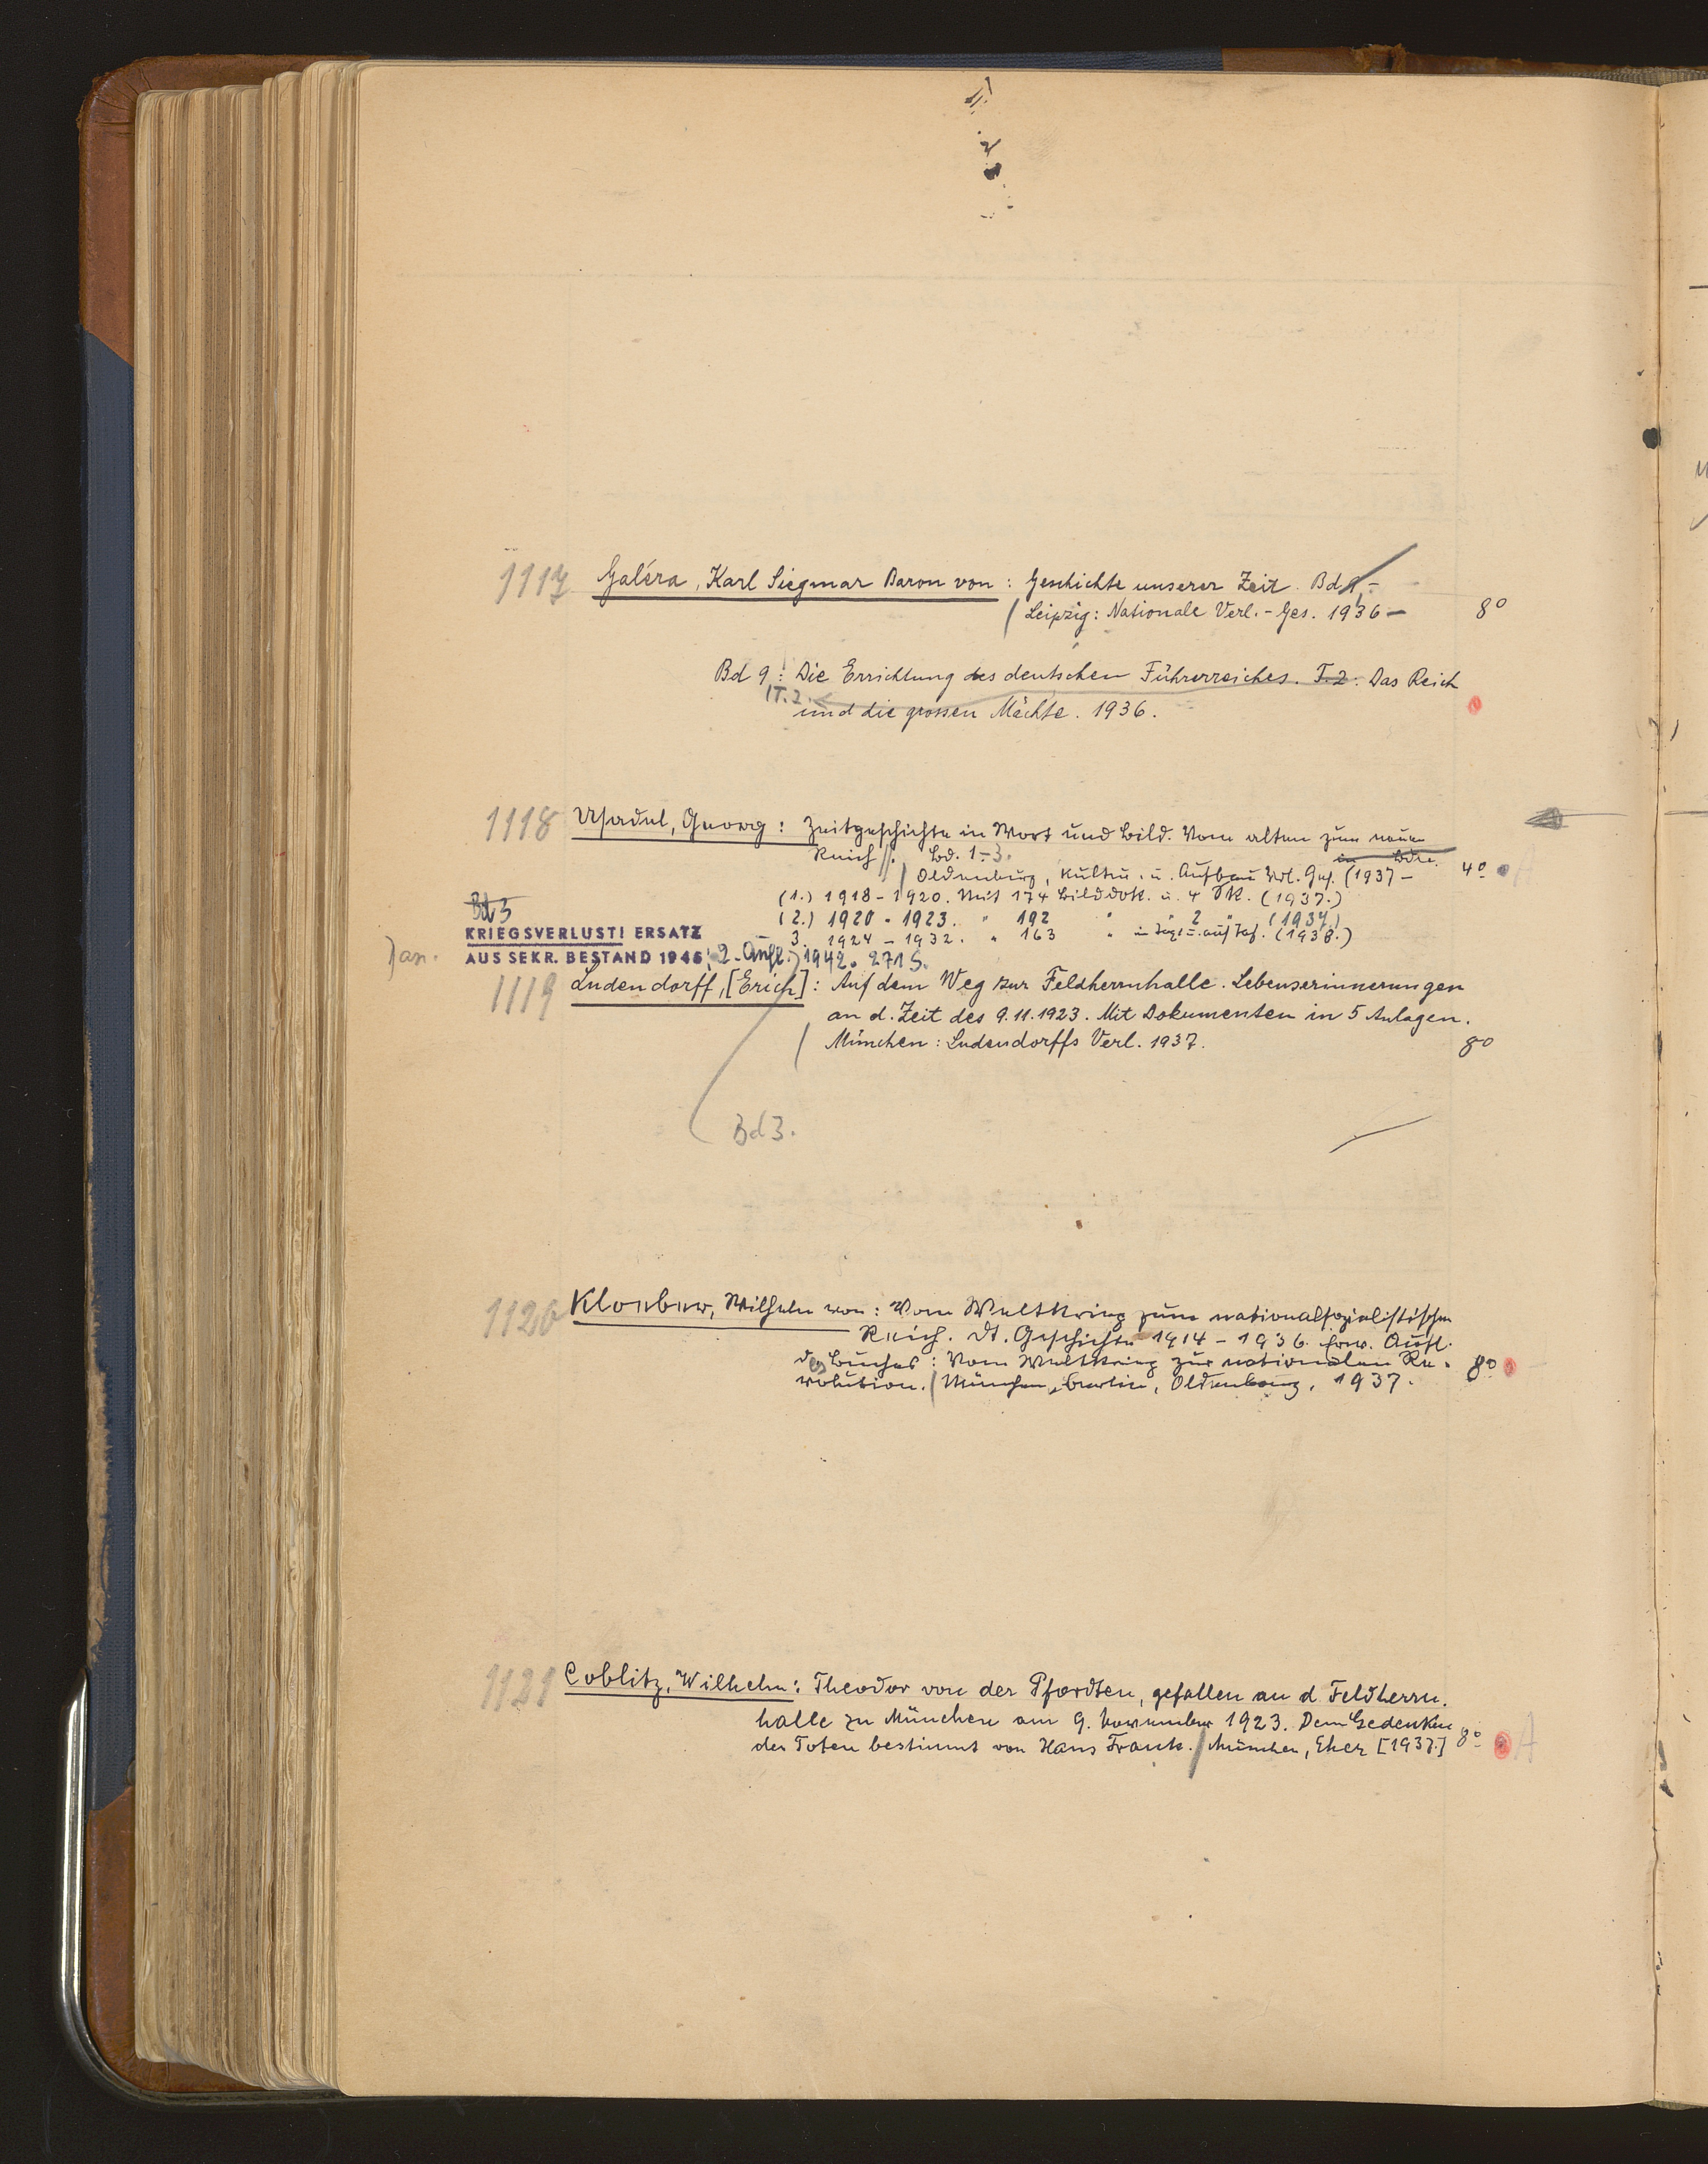 1117 Galéra, Karl Siegmar Baron von: Geschichte unserer Zeit. Bd
Leipzig: Nationale Verl.-Ges. 1936 – 8°
Bd 9: Die Errichtung des deutschen Führerreiches. T. 2: Das Reich
T. 2.
und die grossen Mächte. 1936.
1118 Usadel, Georg: Zeitgeschichte in Wort und Bild. Vom alten zum neuen
Reich. Bd. 1–3.
Oldenburg, Kultur- u. Aufbau Vel. Ges. (1937 – 4°
(1.) 1918–1920. Mit 174 Bilddok. u. 4 (1937.)
Bd 3
(2.) 1920–1923. " 192 " " 2 " (1937.)
KRIEGSVERLUST! ERSATZ
3. 1924–1932. " 163 " auf Taf. (1938.)
AUS SEKR. BESTAND 1946; 2. Aufl. 1942. 271 S.
1119 Ludendorff, [Erich]: Auf dem Weg zur Feldherrnhalle. Lebenserinnerungen
an d. Zeit des 9.11.1923. Mit Dokumenten in 5 Anlagen.
München: Ludendorffs Verl. 1937. 8°
Bd 3.
1120 Kloeber, Wilhelm von: Vom Weltkrieg zum nationalsozialistischen
Reich. Dt. Geschichte 1914–1936. Aufl.
des Buches: Vom Weltkrieg zur nationalen Re- 8°
volution. München, Berlin, Oldenbourg, 1937.
1121 Coblitz, Wilhelm: Theodor von der Pfordten, gefallen an d. Feldherrn-
halle zu München am 9. November 1923. Dem Gedenken
der Toten bestimmt von Hans Frank. München, Eher [1937.] 8° A